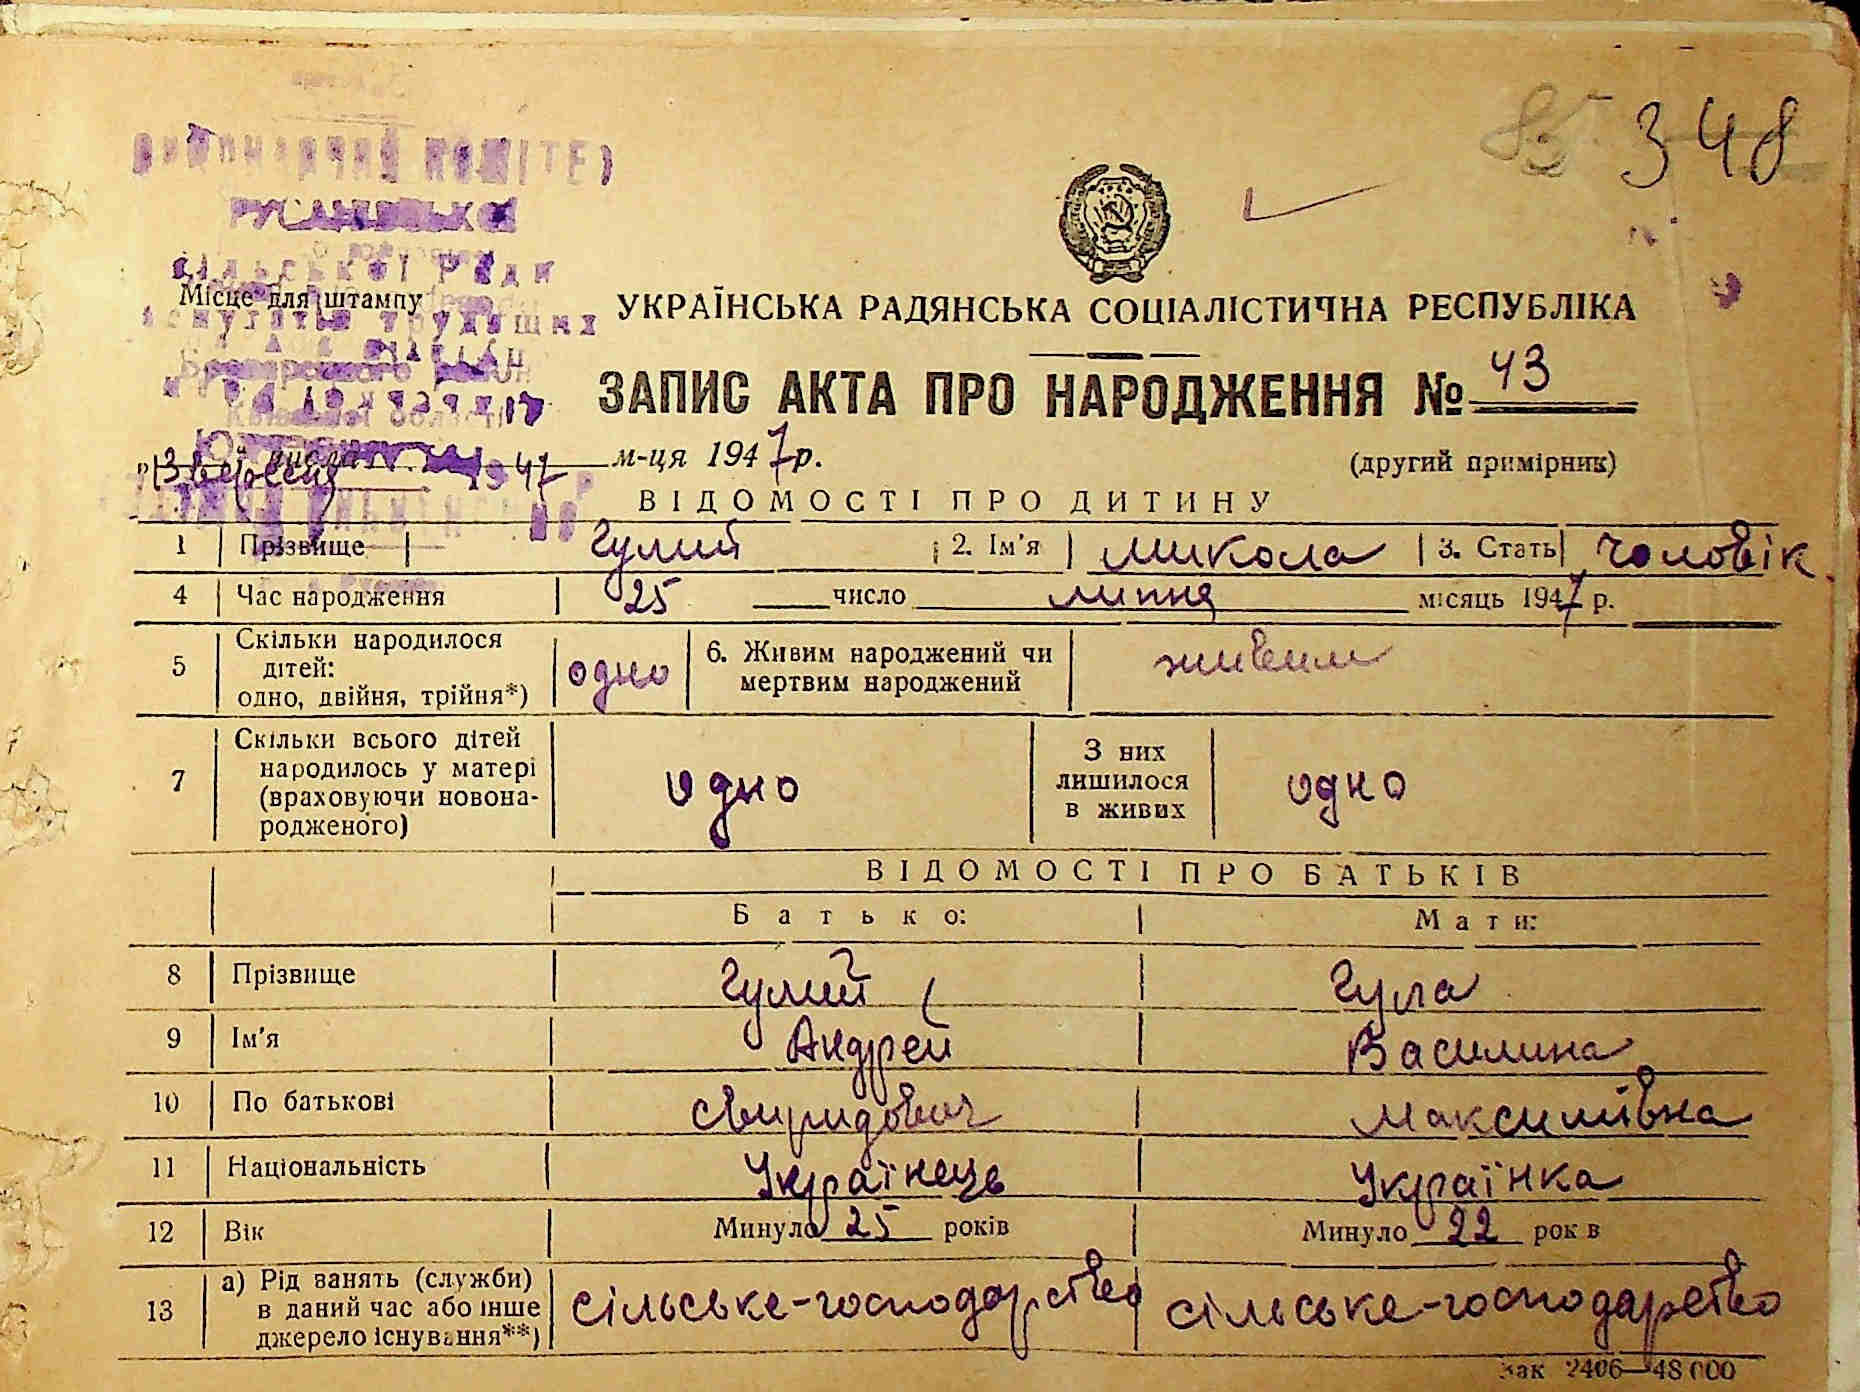 348
РУСАНІВСЬКОЇ
сільської Ради
Місце для штампу
депутатів трудящих
Київської області
УКРАЇНСЬКА РАДЯНСЬКА СОЦІАЛІСТИЧНА РЕСПУБЛІКА
ЗАПИС АКТА ПРО НАРОДЖЕННЯ № 43
"13 вересня 1947 м-ця 1947 р.
(другий примірник)
ВІДОМОСТІ ПРО ДИТИНУ
1 Прізвище Гулий 2. Ім'я Микола 3. Стать чоловік
4 Час народження 25 число липня місяць 1947 р.
5 Скільки народилося дітей: одно, двійня, трійня*) одно 6. Живим народжений чи мертвим народжений живим
7 Скільки всього дітей народилось у матері (враховуючи новонародженого) одно З них лишилося в живих одно
ВІДОМОСТІ ПРО БАТЬКІВ
Батько: Мати:
8 Прізвище Гулий Гула
9 Ім'я Андрей Василина
10 По батькові Свиридович Максимівна
11 Національність Українець Українка
12 Вік Минуло 25 років Минуло 22 рок в
13 а) Рід занять (служби) в даний час або інше джерело існування**) сільське-господарство сільське-господарство
Зак 2406—48000